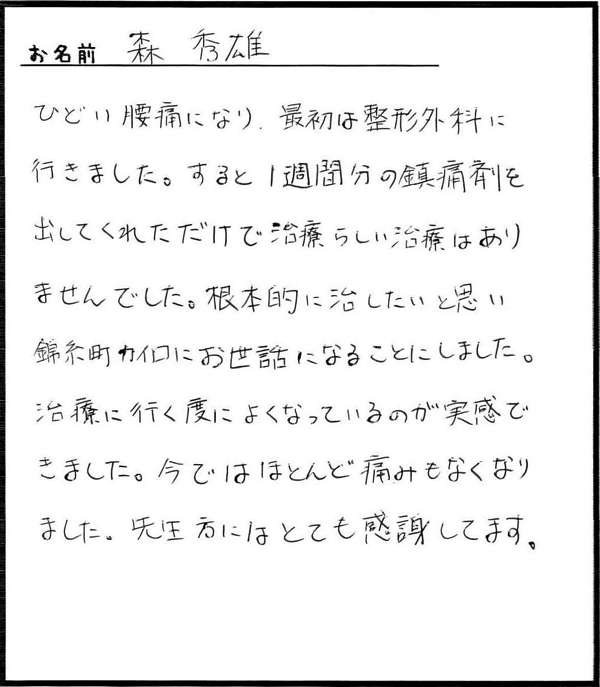 お名前 森 秀雄
ひどい腰痛になり、最初は整形外科に
行きました。すると1週間分の鎮痛剤を
出してくれただけで治療らしい治療はあり
ませんでした。根本的に治したいと思い
錦糸町カイロにお世話になることにしました。
治療に行く度によくなっているのが実感で
きました。今ではほとんど痛みもなくなり
ました。先生方にはとても感謝してます。